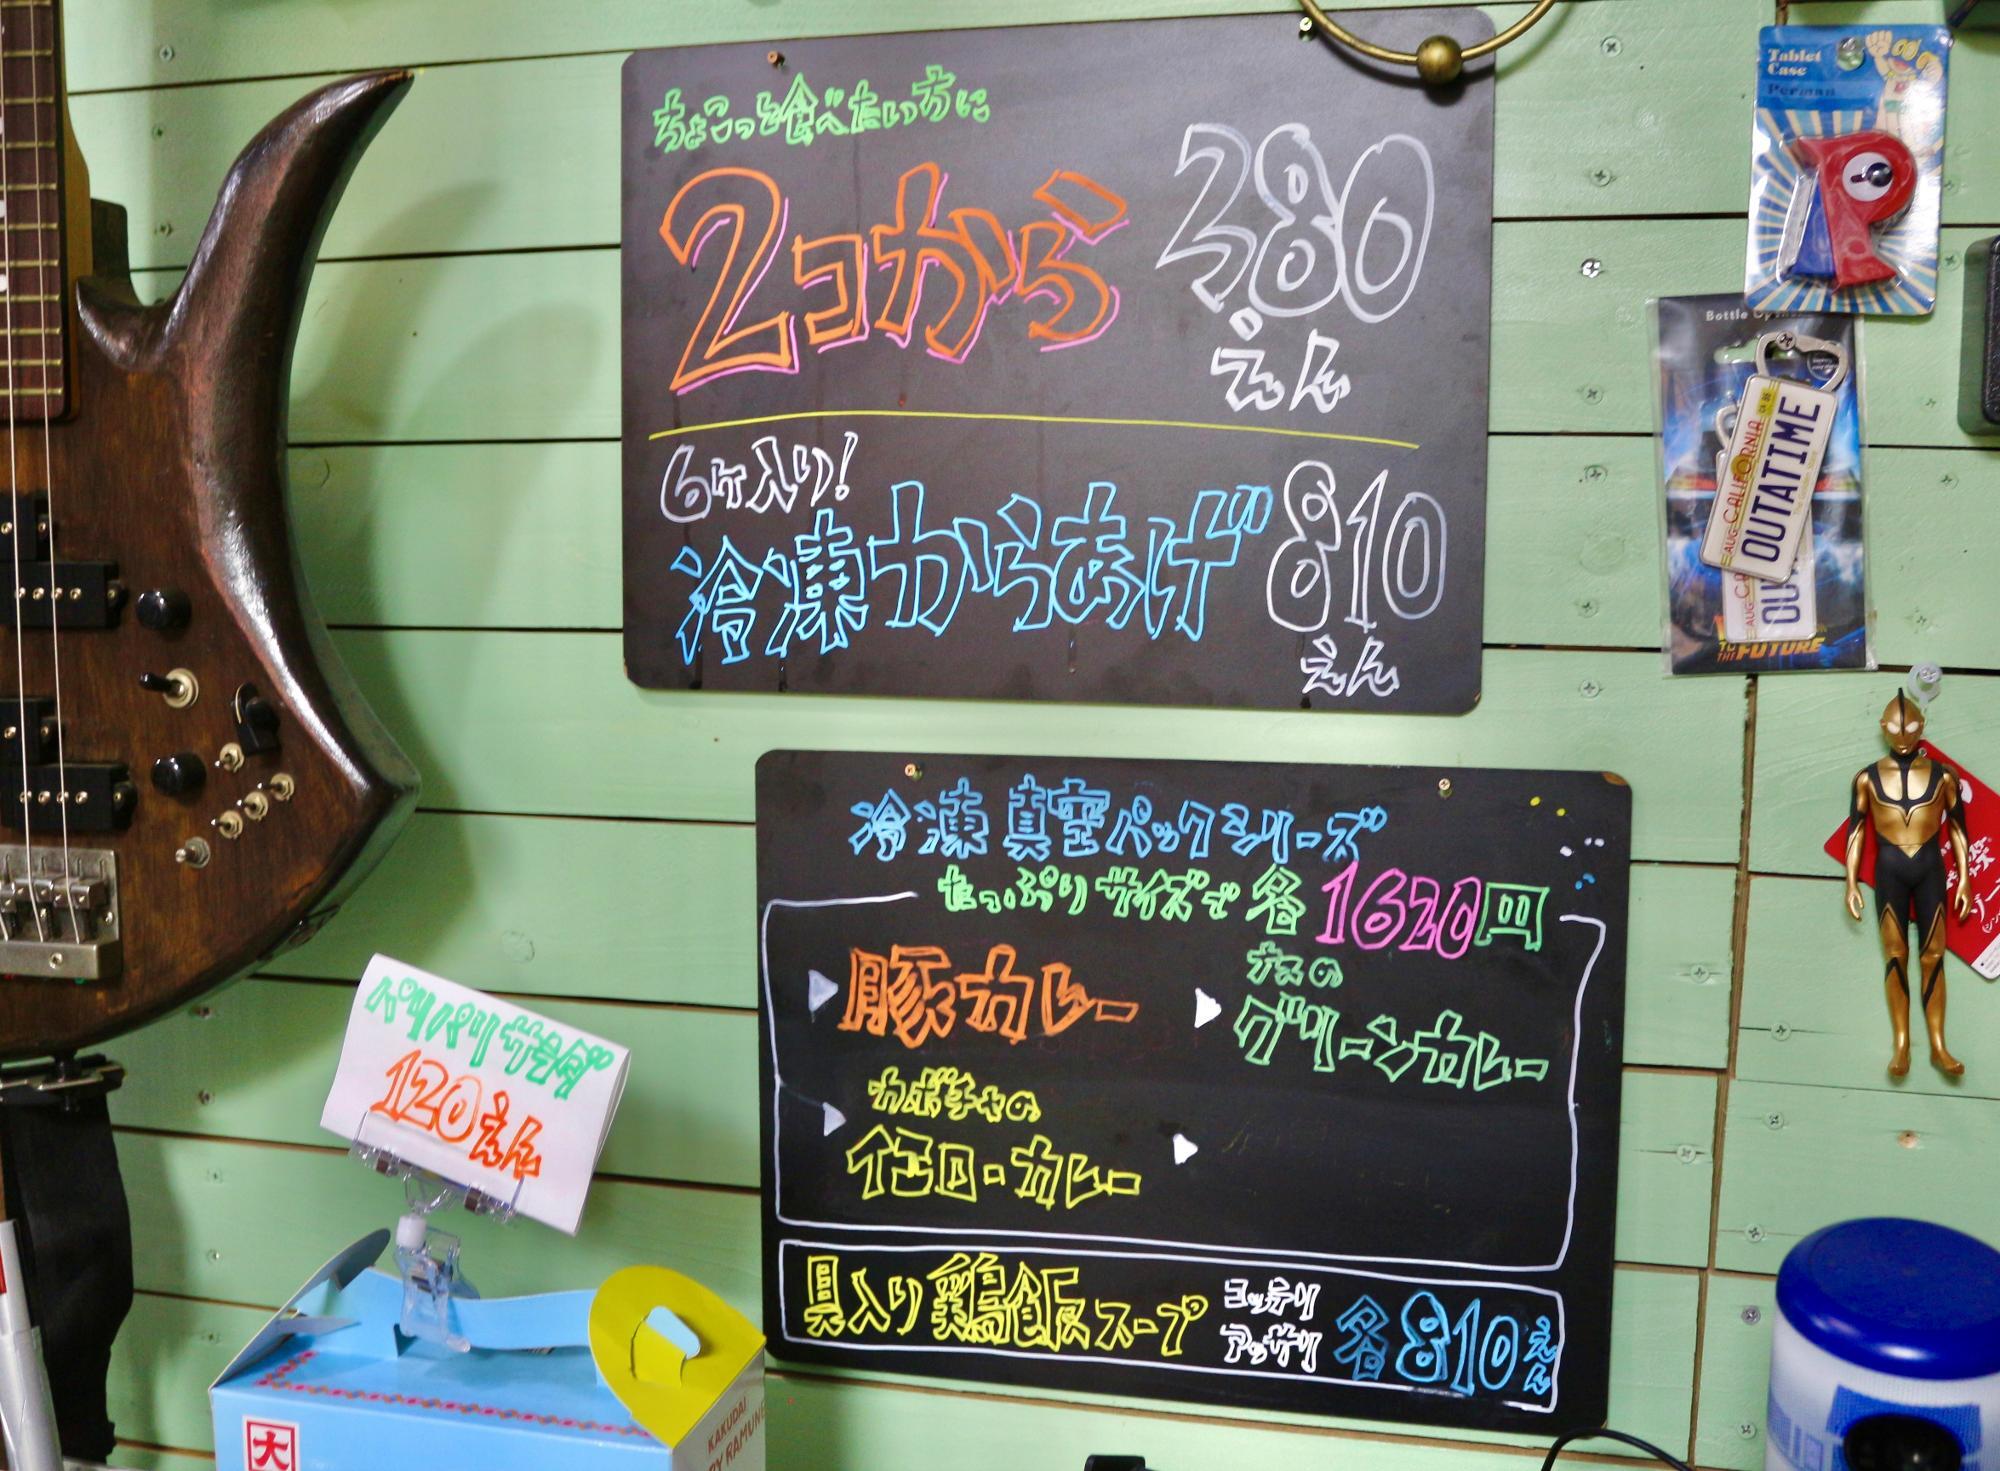 ちょこっと食べたい方に
2コから
280
えん
6ケ入り!
冷凍からあげ
810
えん
冷凍 真空パックシリーズ
たっぷりサイズで 各1620円
豚カレー
ナスの
グリーンカレー
カボチャの
イエロ・カレー
具入り鶏飯スープ
コッテリ
アッサリ
各810えん
パリパリサラダ
120えん
大
KAKUDAI
Tablet
Case
Perman
CALIFORNIA
OUTATIME
FUTURE